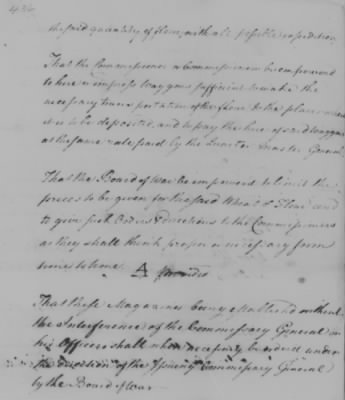 436
the said quantity of flour, with all possible expedition
That the Commissioner or Commissioners be empowered
to hire or impress waggons sufficient to make the
necessary transportation of the flour to the places where
it is to be deposited, and to pay the hire of said waggons
at the same rate paid by the Quarter Master General
That the Board of War be empowered to limit the
prices to be given for the said Wheat & Flour and
to give such Orders & directions to the Commissioners
as they shall think proper or necessary from
time to time. A
That these Magazines being established without
the Interference of the Commissary General or
his Officers shall when necessary be issued under
the direction of the Issuing Commissary General
by the Board of War